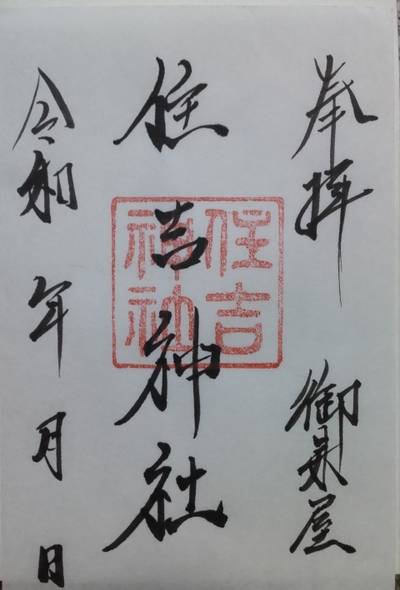 奉拝
御泉屋
住吉神社
住吉神社
令和 年 月 日